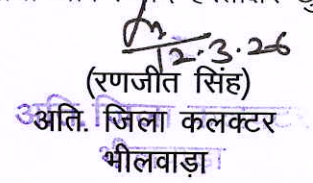 12.3.26
(रणजीत सिंह)
अति. जिला कलक्टर
भीलवाड़ा